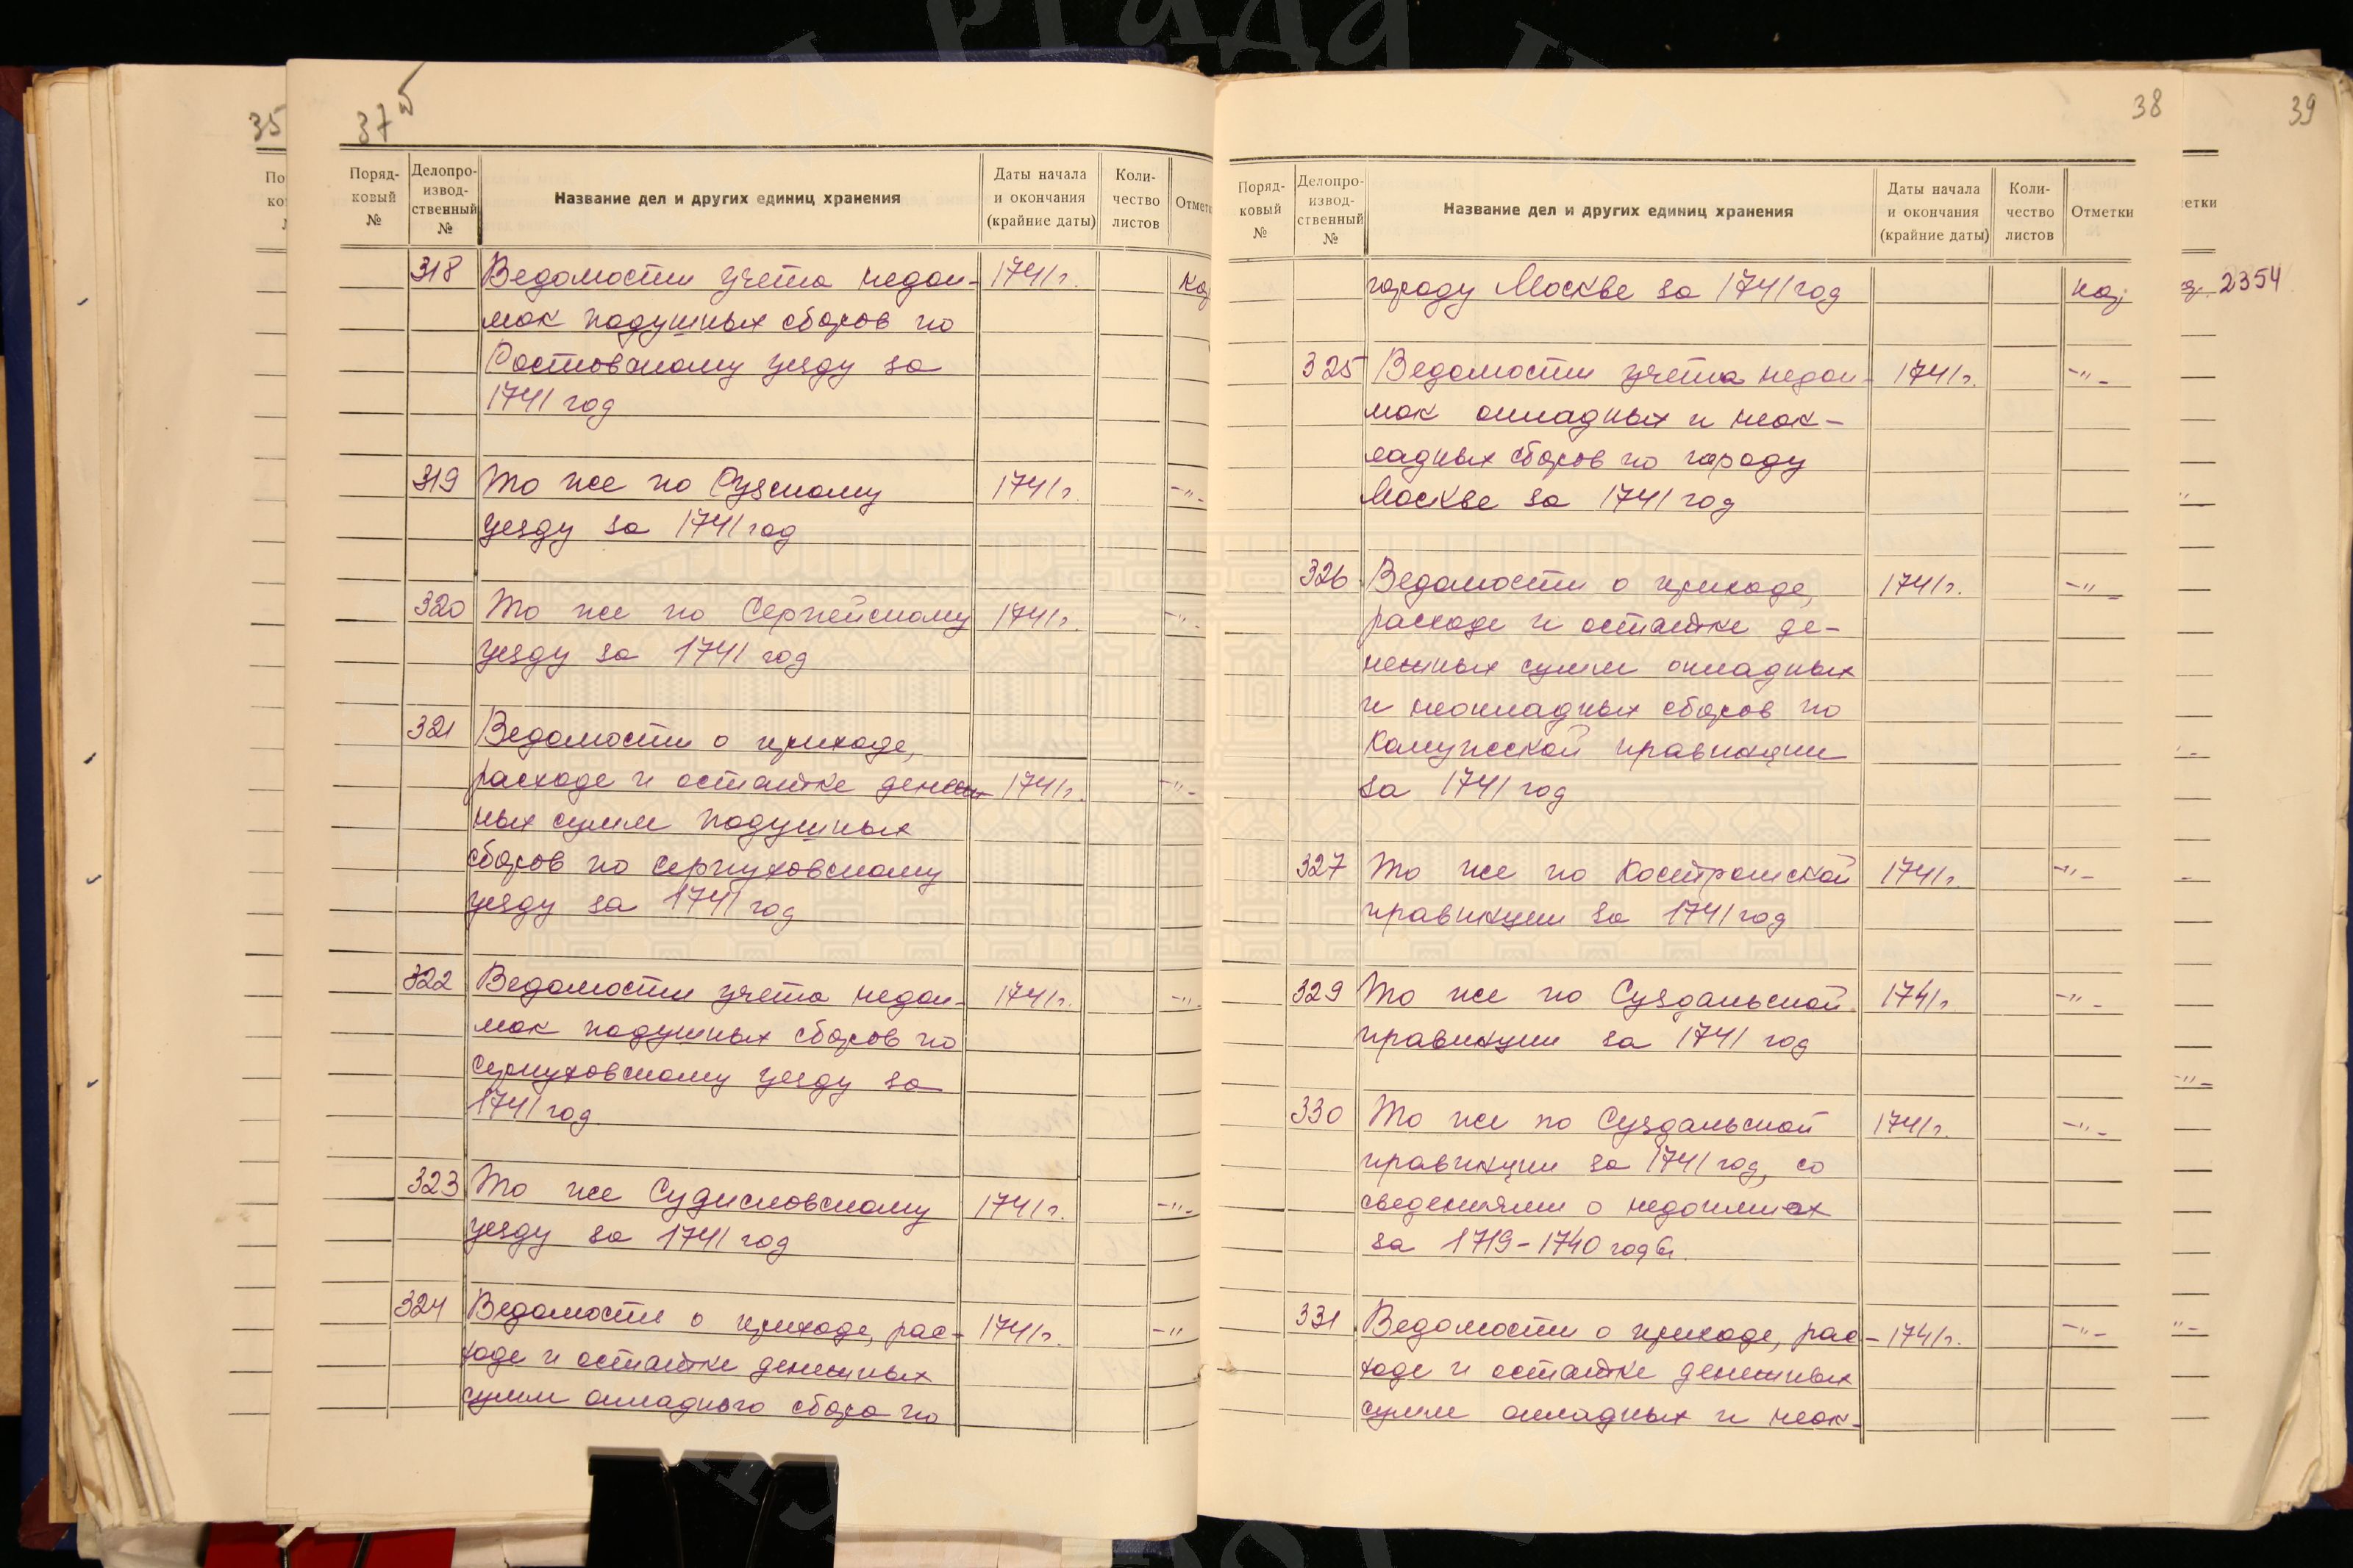 ргада
35
37 б
Поряд-
ковый
№
Делопро-
извод-
ственный
№
Название дел и других единиц хранения
Даты начала
и окончания
(крайние даты)
Коли-
чество
листов
Отметк
318 Ведомости учета недои- 1741 г.
мок подушных сборов по
Ростовскому уезду за
1741 год
319 То же по Рузскому 1741 г. -"-
уезду за 1741 год
320 То же по Серпейскому 1741 г. -"-
уезду за 1741 год
321 Ведомости о приходе,
расходе и остатке денеж- 1741 г. -"-
ных сумм подушных
сборов по Серпуховскому
уезду за 1741 год
322 Ведомости учета недои- 1741 г. -"-
мок подушных сборов по
Серпуховскому уезду за
1741 год.
323 То же Судисловскому 1741 г. -"-
уезду за 1741 год
324 Ведомости о приходе, рас- 1741 г. -"
ходе и остатке денежных
сумм окладного сбора по
38
Поряд-
ковый
№
Делопро-
извод-
ственный
№
Название дел и других единиц хранения
Даты начала
и окончания
(крайние даты)
Коли-
чество
листов
Отметки
городу Москве за 1741 год
325 Ведомости учета недои- 1741 г. -"-
мок окладных и неок-
ладных сборов по городу
Москве за 1741 год
326 Ведомости о приходе, 1741 г. -"-
расходе и остатке де-
нежных сумм окладных
и неокладных сборов по
Калужской провинции
за 1741 год
327 То же по Костромской 1741 г. -"-
провинции за 1741 год
329 То же по Суздальской 1741 г. -"-
провинции за 1741 год
330 То же по Суздальской 1741 г. -"-
провинции за 1741 год, со
сведениями о недоимках
за 1719-1740 годы.
331 Ведомости о приходе, рас- 1741 г. -"-
ходе и остатке денежных
сумм окладных и неок-
39
етки
2354